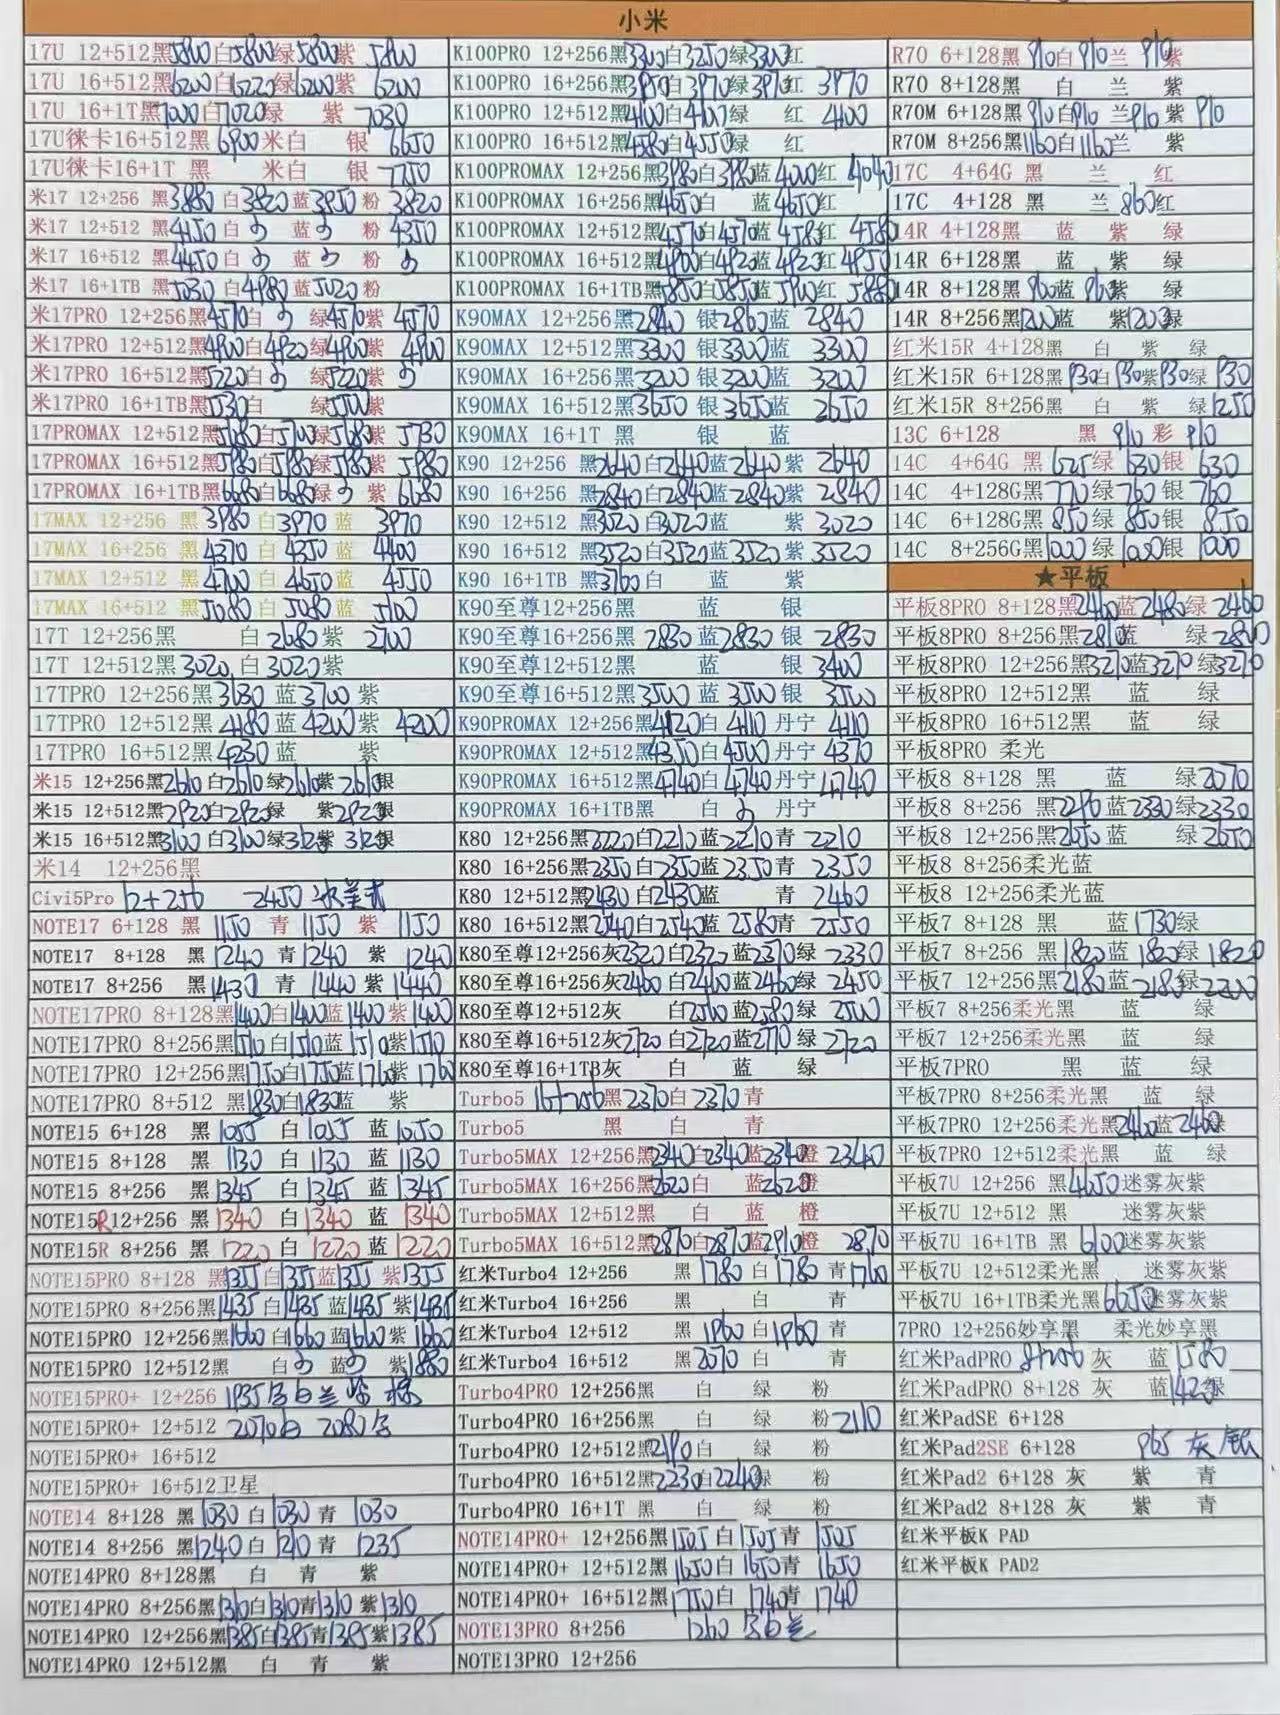 小米
17U 12+512黑5800白5800绿5800紫 5800
17U 16+512黑6200白6220绿6200紫 6200
17U 16+1T黑7000白7020绿 紫 7030
17U徕卡16+512黑 6900米白 银 6650
17U徕卡16+1T 黑 米白 银 7750
米17 12+256 黑3880 白3820 蓝3950 粉 3820
米17 12+512 黑4150 白 蓝 粉 4350
米17 16+512 黑4450 白 蓝 粉
米17 16+1TB 黑5030 白4980 蓝5020 粉
米17PRO 12+256黑4570白 绿4570紫 4570
米17PRO 12+512黑4900白4920绿4900紫 4900
米17PRO 16+512黑5220白 绿5220紫
米17PRO 16+1TB黑5530白 绿5500紫
17PROMAX 12+512黑5680白5700绿5680紫 5730
17PROMAX 16+512黑5980白5980绿5980紫 5980
17PROMAX 16+1TB黑6680白6680绿 紫 6680
17MAX 12+256 黑 3980 白 3970 蓝 3970
17MAX 16+256 黑 4370 白 4350 蓝 4400
17MAX 12+512 黑 4700 白 4650 蓝 4550
17MAX 16+512 黑 5080 白 5080 蓝 5100
17T 12+256黑 白 2680 紫 2700
17T 12+512黑 3020 白 3020紫
17TPRO 12+256黑 3630 蓝 3700 紫
17TPRO 12+512黑 4180 蓝 4200 紫 4200
17TPRO 16+512黑 4230 蓝 紫
米15 12+256黑2610 白2610 绿2610紫 2610银
米15 12+512黑2920白2920绿 紫2920银
米15 16+512黑3100 白3100绿312紫 312银
米14 12+256黑
Civi5Pro 12+256 2450
NOTE17 6+128 黑 1150 青 1150 紫 1150
NOTE17 8+128 黑 1240 青 1240 紫 1240
NOTE17 8+256 黑 1430 青 1440 紫 1440
NOTE17PRO 8+128黑1400白1400蓝1400紫1400
NOTE17PRO 8+256黑1510白1510蓝1510紫1510
NOTE17PRO 12+256黑1750白1750蓝1760紫 1760
NOTE17PRO 8+512 黑1830白1830蓝 紫
NOTE15 6+128 黑 1055 白 1055 蓝 1050
NOTE15 8+128 黑 1130 白 1130 蓝 1130
NOTE15 8+256 黑 1345 白 1345 蓝 1345
NOTE15R12+256 黑 1340 白 1340 蓝 1340
NOTE15R 8+256 黑 1220 白 1220 蓝 1220
NOTE15PRO 8+128 黑1355白1355蓝1355 紫1355
NOTE15PRO 8+256黑1435白1435蓝1435紫1435
NOTE15PRO 12+256黑1660白1660蓝1660紫1660
NOTE15PRO 12+512黑 白 蓝 紫1880
NOTE15PRO+ 12+256 1935
NOTE15PRO+ 12+512 2070白 2080
NOTE15PRO+ 16+512
NOTE15PRO+ 16+512卫星
NOTE14 8+128 黑 1030 白 1030 青 1030
NOTE14 8+256 黑1240 白 1210 青 1235
NOTE14PRO 8+128黑 白 青 紫
NOTE14PRO 8+256黑1310白1310青1310 紫1310
NOTE14PRO 12+256黑1385白1385青1385紫1385
NOTE14PRO 12+512黑 白 青 紫
K100PRO 12+256黑3300白3250绿3300红
K100PRO 16+256黑3950白3970绿3970红 3970
K100PRO 12+512黑4100白4100绿 红 4400
K100PRO 16+512黑4580白4550绿 红
K100PROMAX 12+256黑3980白3980蓝4000红 4040
K100PROMAX 16+256黑4650白 蓝4650红
K100PROMAX 12+512黑4570白4570蓝4580红 4580
K100PROMAX 16+512黑4900白4920蓝4920红 4950
K100PROMAX 16+1TB黑5850白5850蓝5900红 5880
K90MAX 12+256黑2840 银2860蓝 2840
K90MAX 12+512黑3300 银3300蓝 3300
K90MAX 16+256黑3200 银3200蓝 3200
K90MAX 16+512黑3650 银3650蓝 2650
K90MAX 16+1T 黑 银 蓝
K90 12+256 黑2640白2640蓝2640紫 2640
K90 16+256 黑2840白2840蓝2840紫 2840
K90 12+512 黑3020白3020蓝 紫 3020
K90 16+512 黑3520白3520蓝3520紫 3520
K90 16+1TB 黑3760白 蓝 紫
K90至尊12+256黑 蓝 银
K90至尊16+256黑 2830 蓝2830 银 2830
K90至尊12+512黑 蓝 银 3400
K90至尊16+512黑 3500 蓝 3500 银 3500
K90PROMAX 12+256黑4120白 4110 丹宁 4110
K90PROMAX 12+512黑4350白 4500 丹宁 4370
K90PROMAX 16+512黑4740白 4740 丹宁 4740
K90PROMAX 16+1TB黑 白 丹宁
K80 12+256黑2220白2210蓝2210青 2210
K80 16+256黑2350白2350蓝2350青 2350
K80 12+512黑2430白2430蓝 青 2460
K80 16+512黑2540白2540蓝 2580青 2550
K80至尊12+256灰2320白2320蓝2370绿 2330
K80至尊16+256灰2460白2410蓝2460绿 2450
K80至尊12+512灰 白2560蓝2580绿 2500
K80至尊16+512灰2720白2720蓝2770绿 2720
K80至尊16+1TB灰 白 蓝 绿
Turbo5 16+256黑2370白 2370 青
Turbo5 黑 白 青
Turbo5MAX 12+256黑2340白2340蓝2340橙 2340
Turbo5MAX 16+256黑2620白 蓝2620橙
Turbo5MAX 12+512黑 白 蓝 橙
Turbo5MAX 16+512黑2870白2870蓝2910橙 2870
红米Turbo4 12+256 黑 1780 白 1780 青1760
红米Turbo4 16+256 黑 白 青
红米Turbo4 12+512 黑 1960 白1960 青
红米Turbo4 16+512 黑2070 白 青
Turbo4PRO 12+256黑 白 绿 粉
Turbo4PRO 16+256黑 白 绿 粉2110
Turbo4PRO 12+512黑2190白 绿 粉
Turbo4PRO 16+512黑2230白2240绿 粉
Turbo4PRO 16+1T 黑 白 绿 粉
NOTE14PRO+ 12+256黑1505白1505青 1505
NOTE14PRO+ 12+512黑1650白1650青 1650
NOTE14PRO+ 16+512黑1750白 1740青 1740
NOTE13PRO 8+256 1260
NOTE13PRO 12+256
R70 6+128黑 910白 910兰 910紫
R70 8+128黑 白 兰 紫
R70M 6+128黑910白910 兰910紫 910
R70M 8+256黑1160白1160兰 紫
17C 4+64G 黑 兰 红
17C 4+128 黑 兰 860红
14R 4+128黑 蓝 紫 绿
14R 6+128黑 蓝 紫 绿
14R 8+128黑 960蓝 960紫 绿
14R 8+256黑1200蓝 紫1200绿
红米15R 4+128黑 白 紫 绿
红米15R 6+128黑 930白930紫930绿 930
红米15R 8+256黑 白 紫 绿1250
13C 6+128 黑 910 彩 910
14C 4+64G 黑 625绿 630银 630
14C 4+128G黑 770绿 760 银 760
14C 6+128G黑 850绿 850银 850
14C 8+256G黑1000 绿 1000银 1000
★平板
平板8PRO 8+128黑2460蓝2480绿 2460
平板8PRO 8+256黑2810蓝 绿 2800
平板8PRO 12+256黑3270蓝3270 绿3270
平板8PRO 12+512黑 蓝 绿
平板8PRO 16+512黑 蓝 绿
平板8PRO 柔光
平板8 8+128 黑 蓝 绿2070
平板8 8+256 黑2290蓝2330绿2330
平板8 12+256黑2650蓝 绿2650
平板8 8+256柔光蓝
平板8 12+256柔光蓝
平板7 8+128 黑 蓝1730绿
平板7 8+256 黑1820蓝 1820绿 1820
平板7 12+256黑2180蓝 2180绿2200
平板7 8+256柔光黑 蓝 绿
平板7 12+256柔光黑 蓝 绿
平板7PRO 黑 蓝 绿
平板7PRO 8+256柔光黑 蓝 绿
平板7PRO 12+256柔光黑2460蓝2460绿
平板7PRO 12+512柔光黑 蓝 绿
平板7U 12+256 黑4650迷雾灰紫
平板7U 12+512 黑 迷雾灰紫
平板7U 16+1TB 黑 6100迷雾灰紫
平板7U 12+512柔光黑 迷雾灰紫
平板7U 16+1TB柔光黑6050迷雾灰紫
7PRO 12+256妙享黑 柔光妙享黑
红米PadPRO 8+256 灰 蓝1580
红米PadPRO 8+128 灰 蓝1420绿
红米PadSE 6+128
红米Pad2SE 6+128 965 灰 银
红米Pad2 6+128 灰 紫 青
红米Pad2 8+128 灰 紫 青
红米平板K PAD
红米平板K PAD2